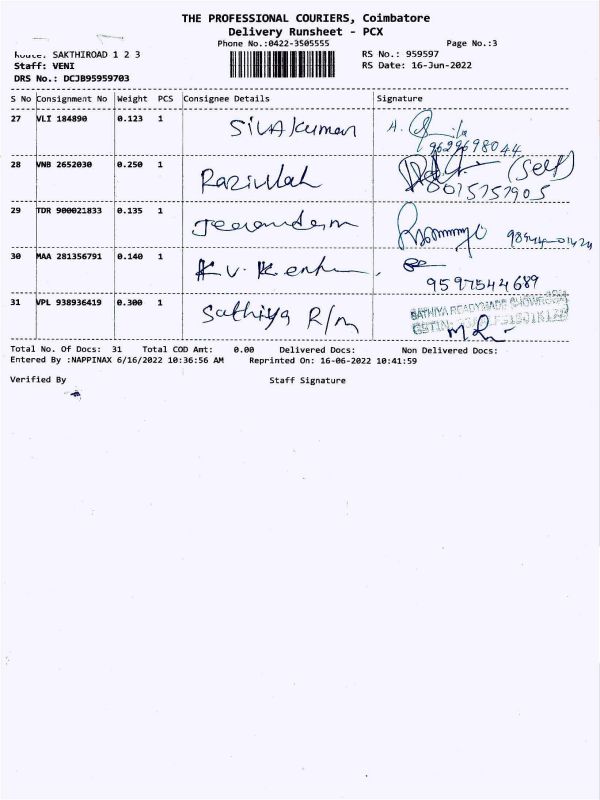 THE PROFESSIONAL COURIERS, Coimbatore
Delivery Runsheet - PCX
Phone No.:0422-3505555 Page No.:3
Route: SAKTHIROAD 1 2 3 RS No.: 959597
Staff: VENI RS Date: 16-Jun-2022
DRS No.: DCJB95959703
S No Consignment No Weight PCS Consignee Details Signature
27 VLI 184890 0.123 1 Silvakuman A.
9629698044
28 VNB 2652030 0.250 1 Raziullah (Self)
8015757905
29 TDR 900021833 0.135 1
30 MAA 281356791 0.140 1 K.V.
9597544689
31 VPL 938936419 0.300 1 Sathiya R/m SATHIYA READYMADE SHOWROOM
GSTIN
Total No. Of Docs: 31 Total COD Amt: 0.00 Delivered Docs: Non Delivered Docs:
Entered By :NAPPINAX 6/16/2022 10:36:56 AM Reprinted On: 16-06-2022 10:41:59
Verified By Staff Signature